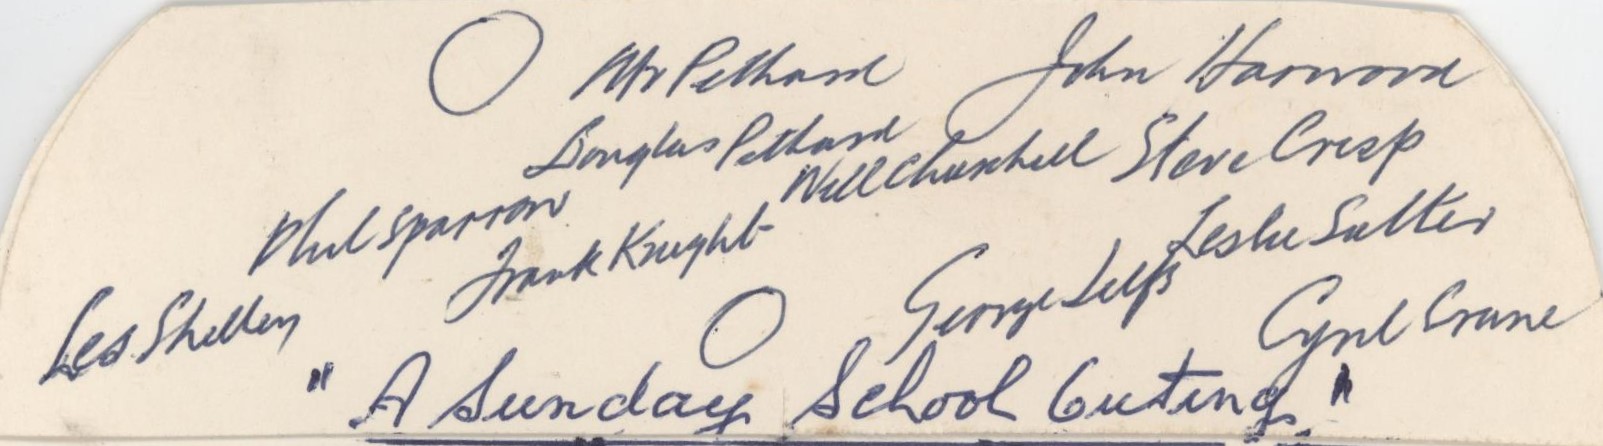 Mr Pethard John Harwood
Douglas Pethard Will Churchill Steve Crisp
Phil Sparrow Frank Knight Leslie Salter
Les Shelley George Cyril Crane
"A Sunday School Outing"